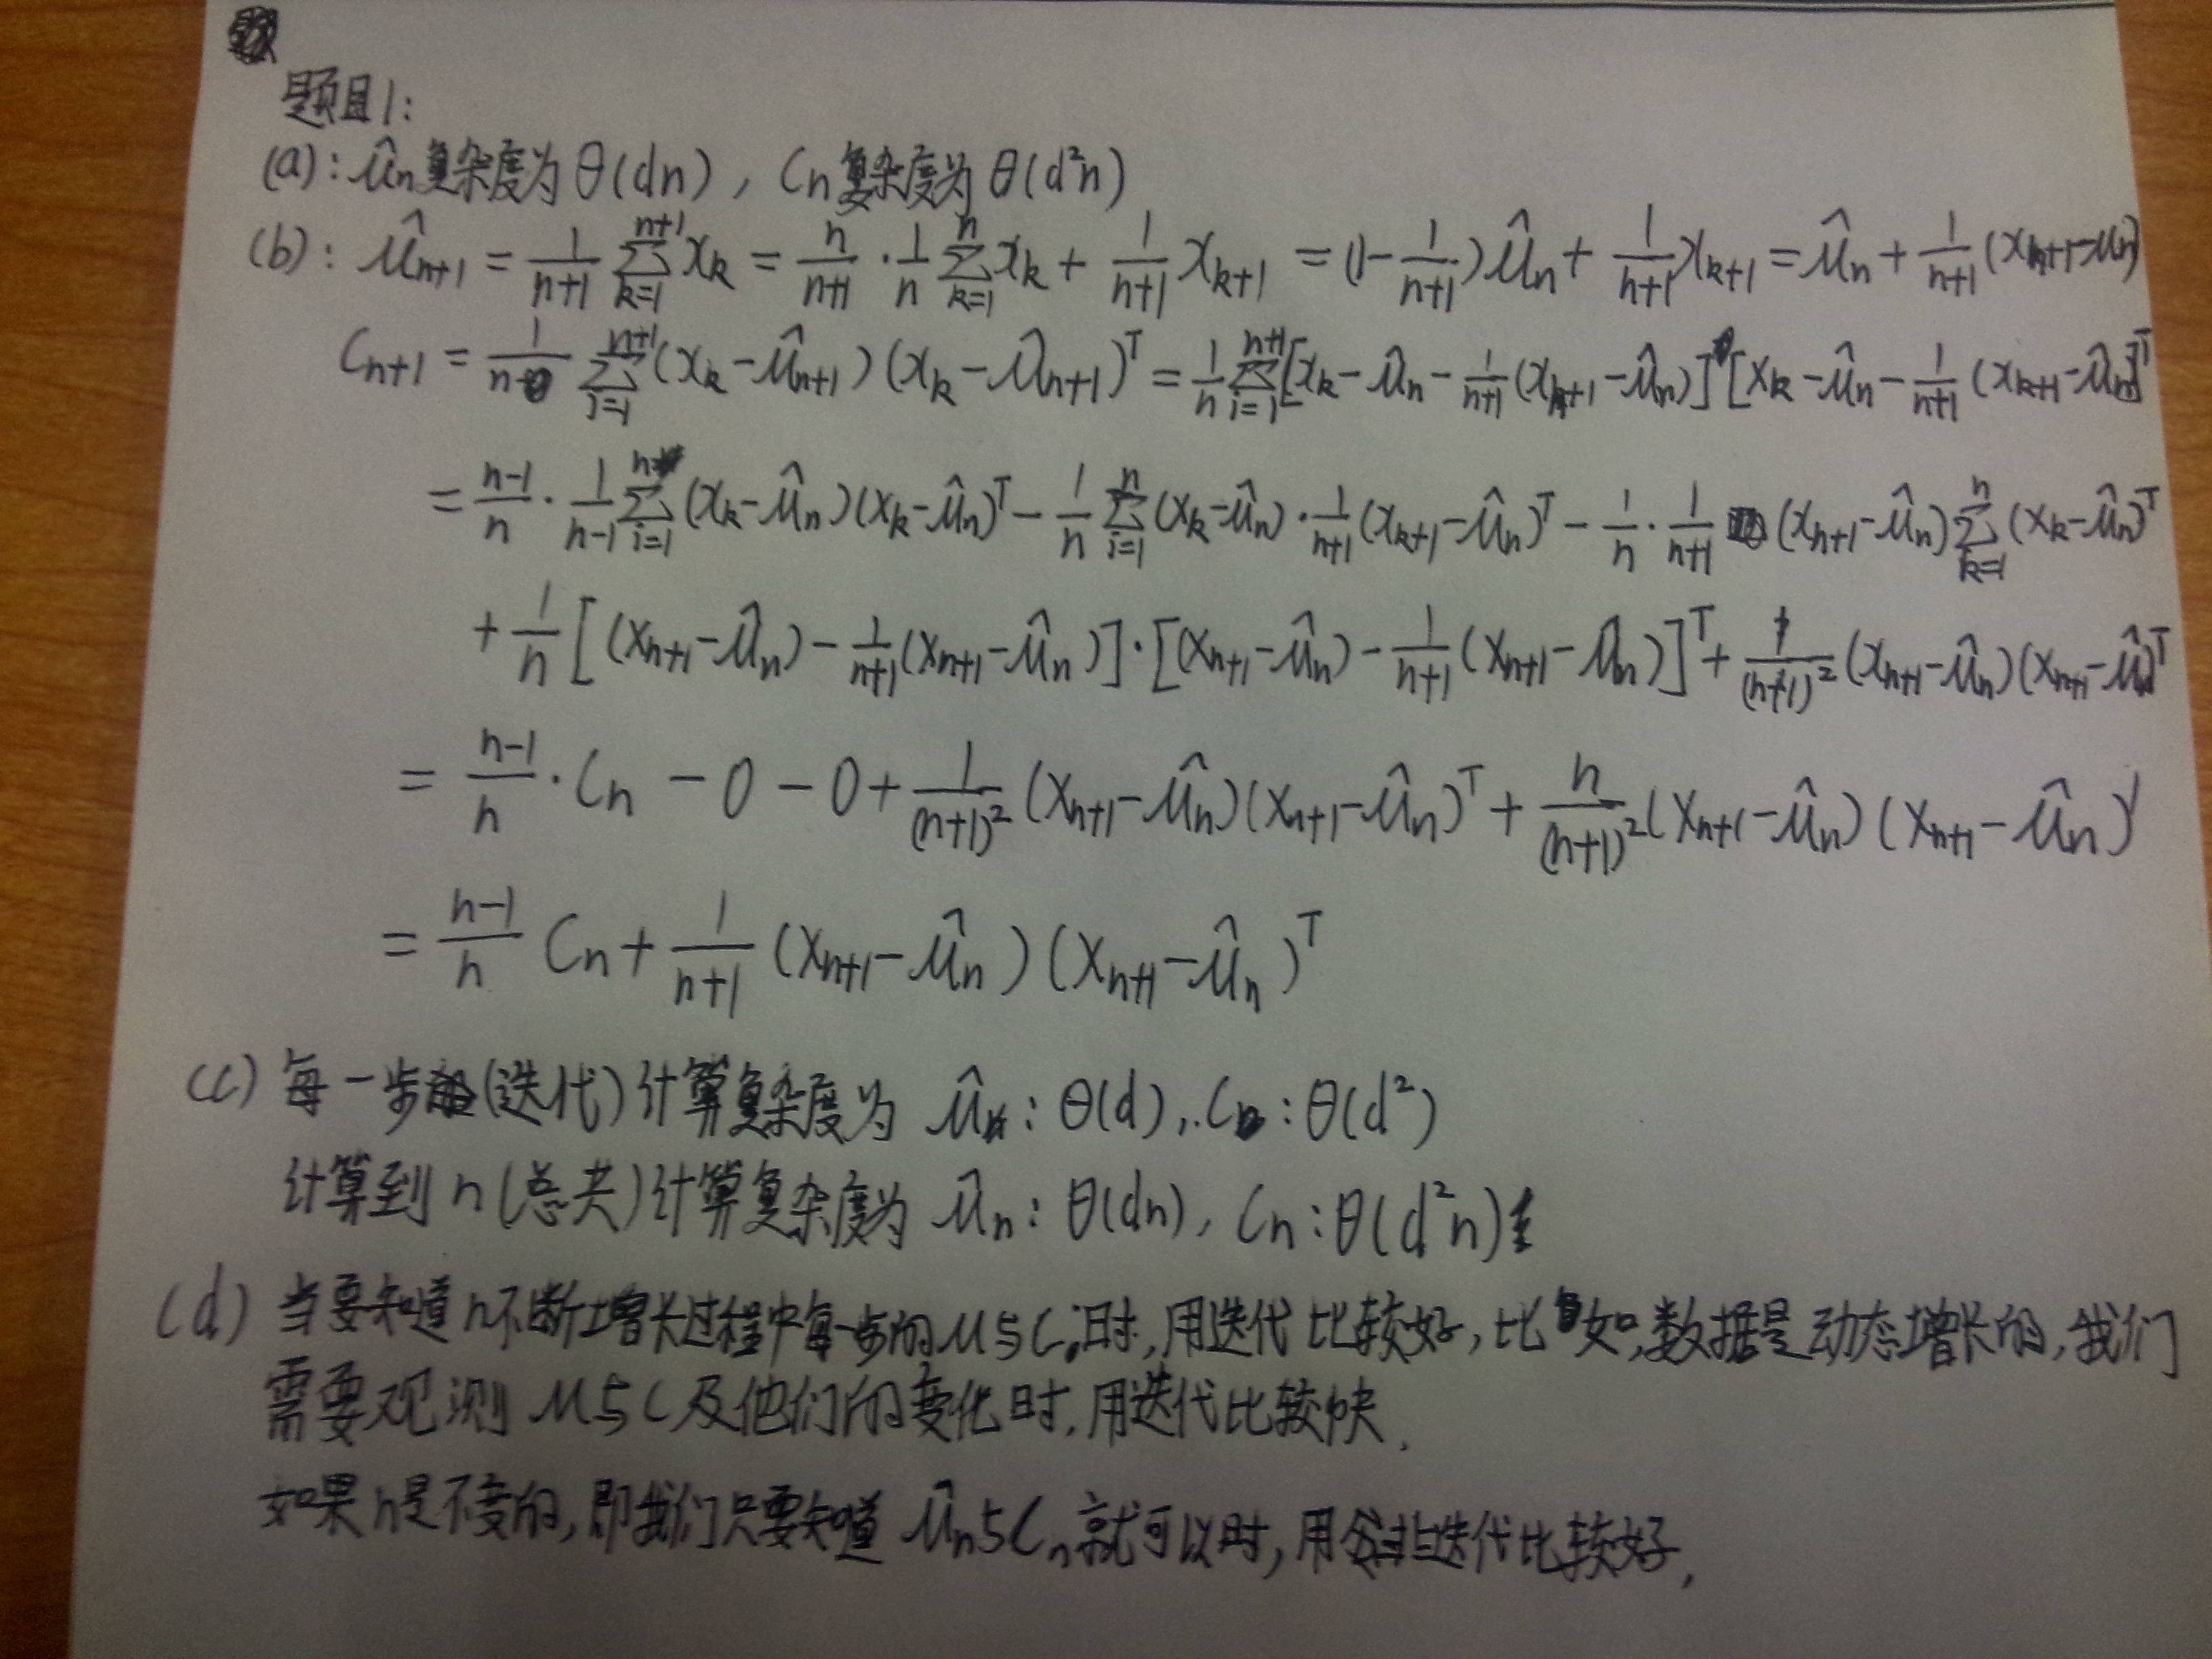 题目1:
(a): μ̂n复杂度为 θ(dn), Cn复杂度为 θ(d²n)
(b): μ̂n+1 = 1/(n+1) ∑(k=1→n+1) xk = n/(n+1) · 1/n ∑(k=1→n) xk + 1/(n+1) xk+1 = (1-1/(n+1)) μ̂n + 1/(n+1) xk+1 = μ̂n + 1/(n+1) (xn+1-μn)
Cn+1 = 1/n ∑(i=1→n+1) (xk-μ̂n+1)(xk-μ̂n+1)ᵀ = 1/n ∑(i=1→n+1) [xk-μ̂n-1/(n+1)(xk+1-μ̂n)][xk-μ̂n-1/(n+1)(xk+1-μ̂n)]ᵀ
= (n-1)/n · 1/(n-1) ∑(i=1→n) (xk-μ̂n)(xk-μ̂n)ᵀ - 1/n ∑(i=1→n) (xk-μ̂n) · 1/(n+1) (xk+1-μ̂n)ᵀ - 1/n · 1/(n+1) (xn+1-μ̂n) ∑(k=1→n) (xk-μ̂n)ᵀ
+ 1/n [(xn+1-μ̂n)-1/(n+1)(xn+1-μ̂n)] · [(xn+1-μ̂n)-1/(n+1)(xn+1-μ̂n)]ᵀ + 1/(n+1)² (xn+1-μ̂n)(xn+1-μ̂n)ᵀ
= (n-1)/n · Cn - 0 - 0 + 1/(n+1)² (xn+1-μ̂n)(xn+1-μ̂n)ᵀ + n/(n+1)² (xn+1-μ̂n)(xn+1-μ̂n)ᵀ
= (n-1)/n Cn + 1/(n+1) (xn+1-μ̂n)(xn+1-μ̂n)ᵀ
(c) 每一步(迭代)计算复杂度为 μ̂n: θ(d), Cn: θ(d²)
计算到n(总共)计算复杂度为 μ̂n: θ(dn), Cn: θ(d²n)
(d) 当要知道n不断增长过程中每一步的μ与C时,用迭代比较好,比如,数据是动态增长的,我们
需要观测μ与C及他们的变化时,用迭代比较快.
如果n是不变的,即我们只要知道μ̂n与Cn就可以时,用非迭代比较好.